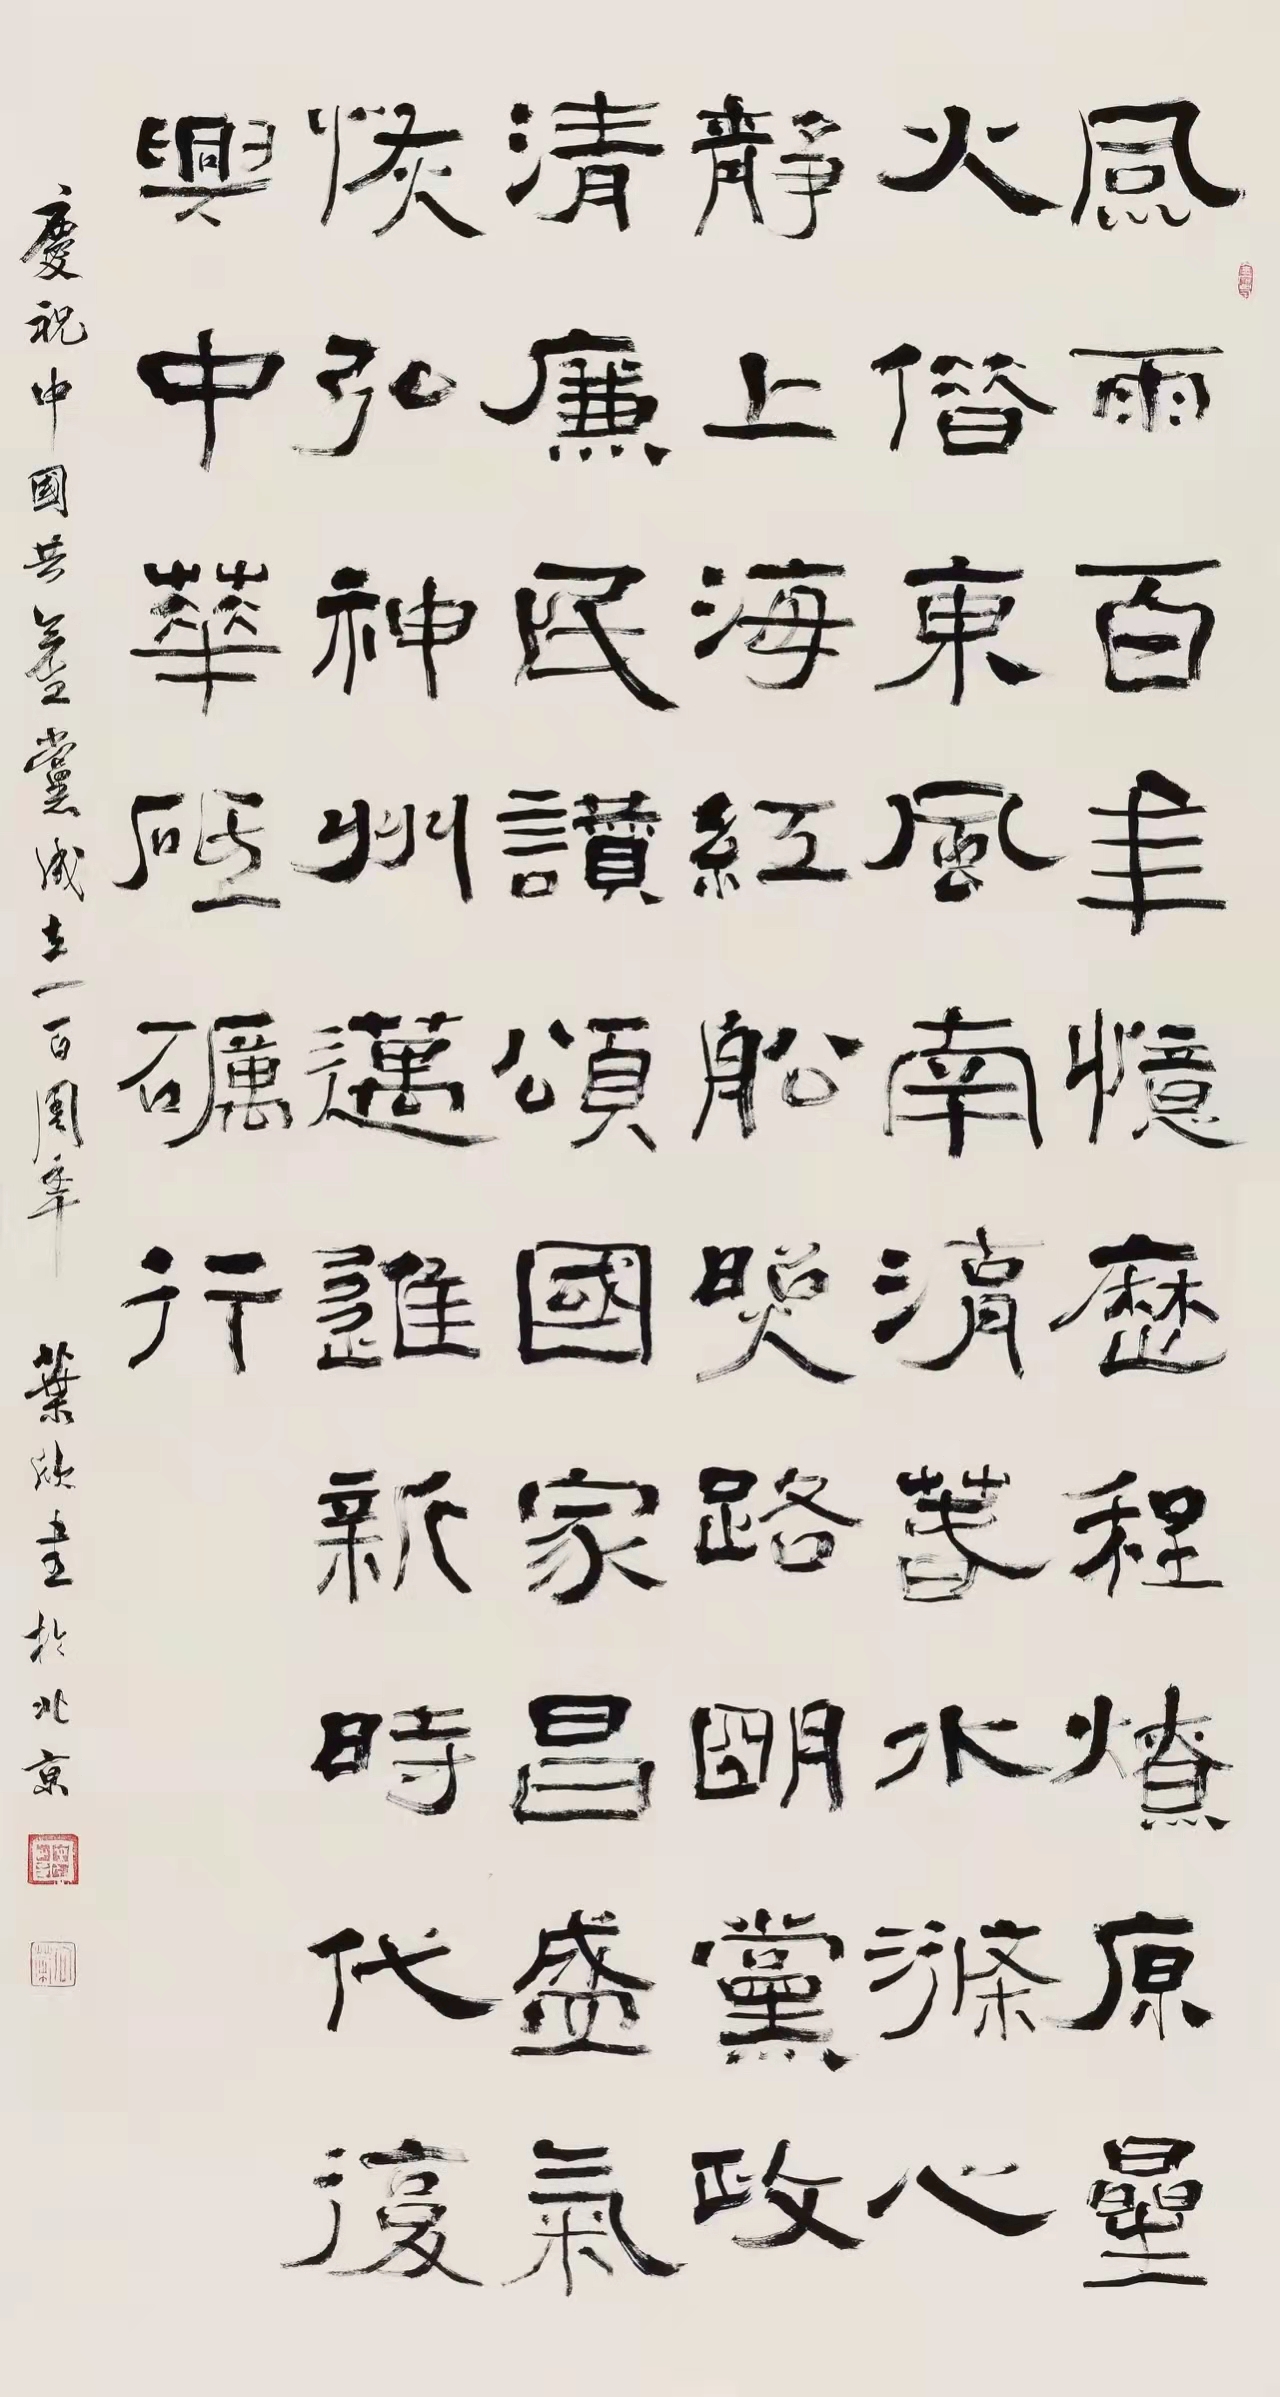 風雨百年憶歷程燎原星
火借東風南湖春水滌心
靜上海紅船映路明黨政
清廉民讚頌國家昌盛氣
恢弘神州邁進新時代復
興中華砥礪行
慶祝中國共產黨成立一百周年 葉欣書於北京